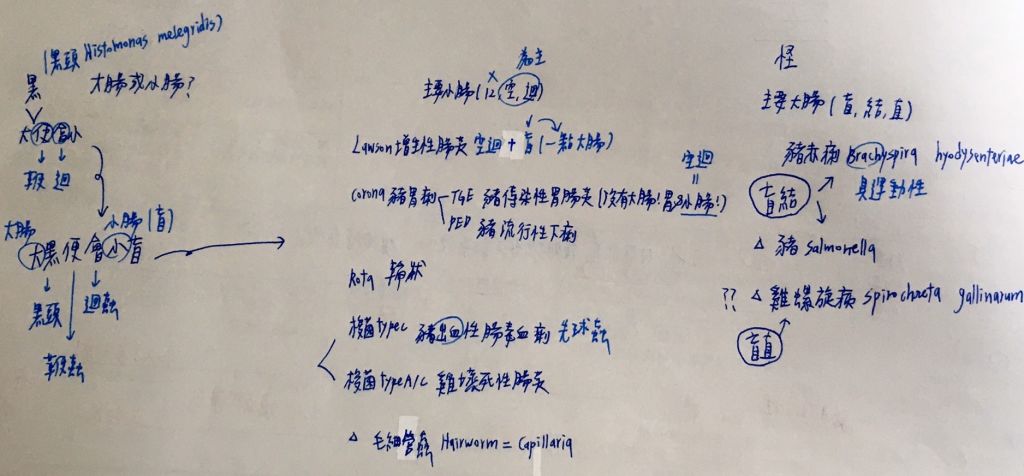 (黑頭 Histomonas melegridis)
黑
大腸或小腸?
鞭 迴
大腸
小腸(盲)
大黑便會小盲
黑頭 迴蟲
鞭蟲
為主
主要小腸(12,空,迴)
Lawson增生性腸炎 空迴+盲(一點大腸)
空迴
Corona豬胃病 TGE 豬傳染性胃腸炎(沒有大腸!胃及小腸!)
PED 豬流行性下痢
Rota 輪狀
梭菌typeC 豬出血性腸毒血痢 光球蟲
梭菌typeA/C 雞壞死性腸炎
△ 毛細管蟲 Hairworm = Capillaria
怪
主要大腸(盲,結,直)
豬赤痢 Brachyspira hyodysenteriae
具運動性
盲結
△ 豬 salmonella
?? △ 雞螺旋病 spirochaeta gallinarum
盲直